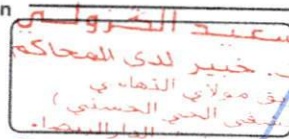 n
سعيد الكزولي
خبير لدى المحاكم
مولاي التهامي
الحي الحسني )
الدار البيضاء.